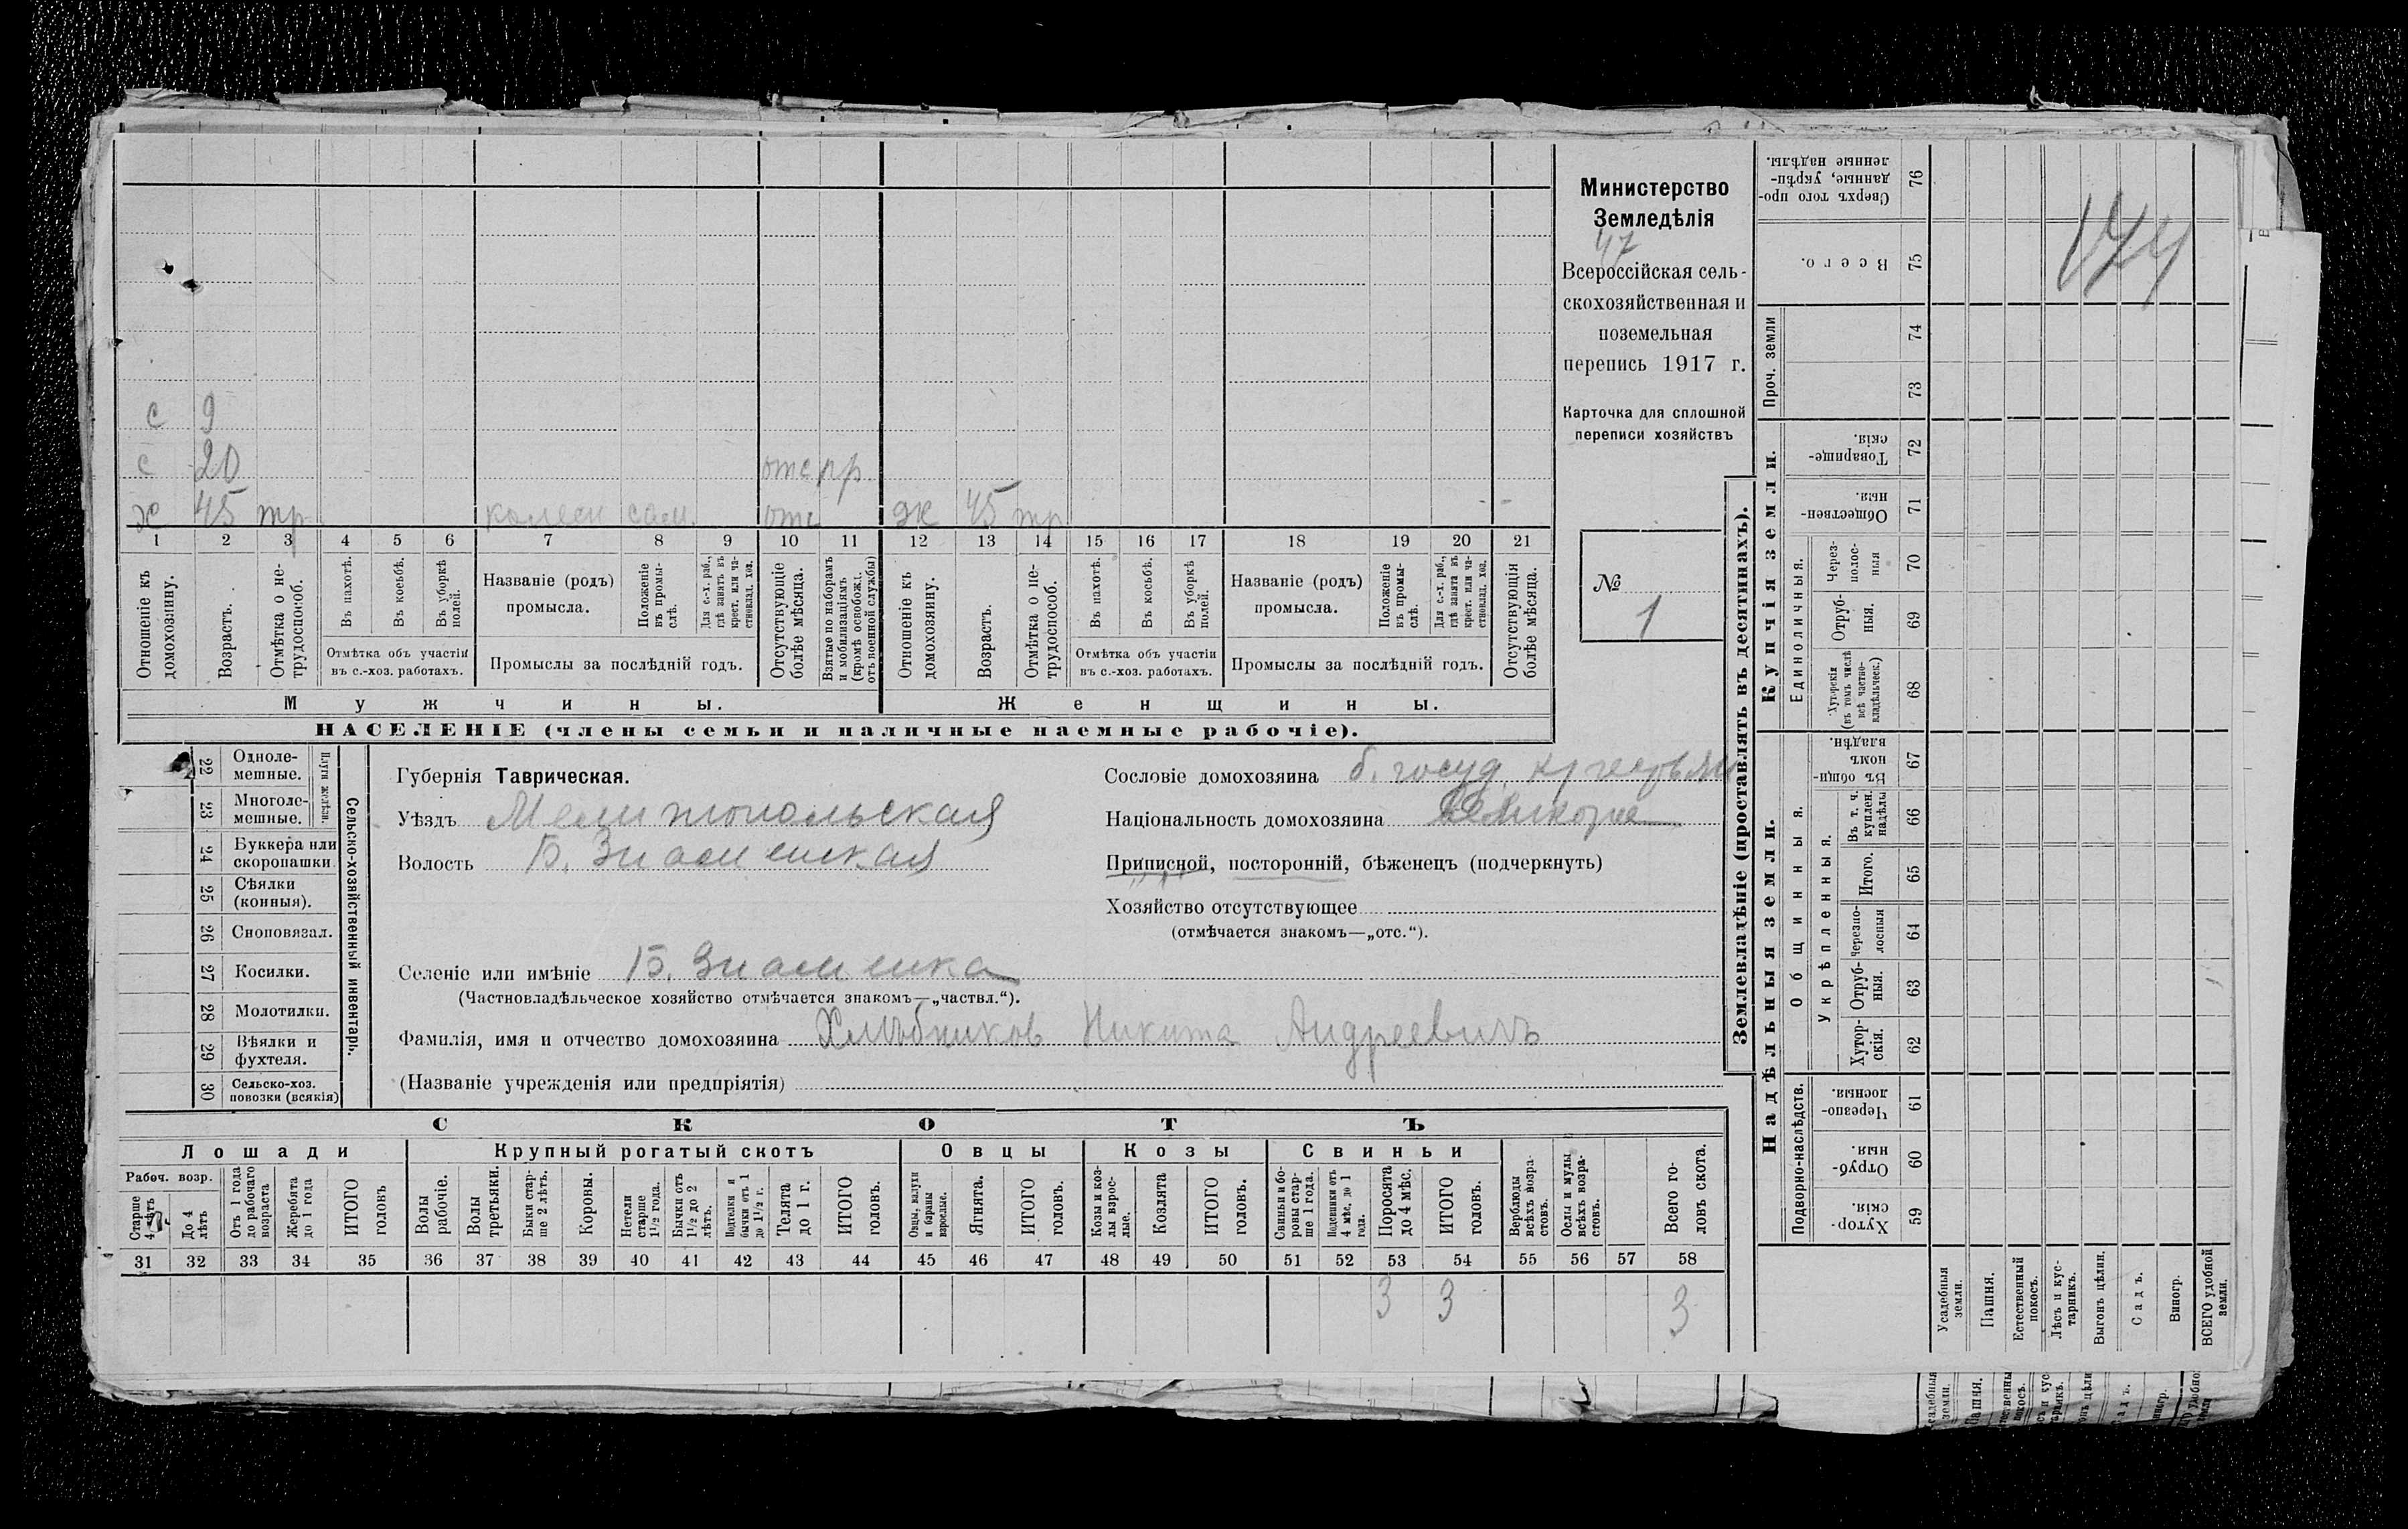 Министерство
Земледѣлія
47
Всероссійская сель-
скохозяйственная и
поземельная
перепись 1917 г.
Карточка для сплошной
переписи хозяйствъ
№
1
с 9
с 20 отс пр
х 45 тр сам. отс ж 45 тр
1 2 3 4 5 6 7 8 9 10 11 12 13 14 15 16 17 18 19 20 21
Отношеніе къ домохозяину.
Возрастъ.
Отмѣтка о не-трудоспособ.
Въ пахотѣ.
Въ косьбѣ.
Въ уборкѣ полей.
Отмѣтка объ участіи
въ с.-хоз. работахъ.
Названіе (родъ)
промысла.
Положеніе въ промы-слѣ.
Для с.-х. раб., гдѣ занятъ въ крест. или ча-стновлад. хоз.
Промыслы за послѣдній годъ.
Отсутствующіе болѣе мѣсяца.
Взятые по наборамъ и мобилизаціямъ (кромѣ освобожд. отъ военной службы)
Отношеніе къ домохозяину.
Возрастъ.
Отмѣтка о не-трудоспособ.
Въ пахотѣ.
Въ косьбѣ.
Въ уборкѣ полей.
Отмѣтка объ участіи
въ с.-хоз. работахъ.
Названіе (родъ)
промысла.
Положеніе въ промы-слѣ.
Для с.-х. раб., гдѣ занята въ крест. или ча-стновлад. хоз.
Промыслы за послѣдній годъ.
Отсутствующія болѣе мѣсяца.
Мужчины.
Женщины.
НАСЕЛЕНІЕ (члены семьи и наличные наемные рабочіе).
22 Одноле-мешные.
23 Многоле-мешные.
Плуги желѣзн.
24 Буккера или скоропашки
25 Сѣялки (конныя).
26 Сноповязал.
27 Косилки.
28 Молотилки.
29 Вѣялки и фухтеля.
30 Сельско-хоз. повозки (всякія)
Сельско-хозяйственный инвентарь.
Губернія Таврическая.
Уѣздъ Мелитопольская
Волость Б. Знаменская
Селеніе или имѣніе Б. Знаменка
(Частновладѣльческое хозяйство отмѣчается знакомъ—„частвл.“).
Фамилія, имя и отчество домохозяина Хлѣбников Никита Андреевичъ
(Названіе учрежденія или предпріятія)
Сословіе домохозяина б. госуд. крестьян
Національность домохозяина великорос
Приписной, посторонній, бѣженецъ (подчеркнуть)
Хозяйство отсутствующее
(отмѣчается знакомъ—„отс.“).
СКОТЪ
Лошади
Крупный рогатый скотъ
Овцы
Козы
Свиньи
Рабоч. возр.
Старше 4 лѣтъ
До 4 лѣтъ
Отъ 1 года до рабочаго возраста
Жеребята до 1 года
ИТОГО головъ
Волы рабочіе.
Волы третьяки.
Быки стар-ше 2 лѣтъ.
Коровы.
Нетели старше 1½ года.
Бычки отъ 1½ до 2 лѣтъ.
Подтелки и бычки отъ 1 до 1½ г.
Телята до 1 г.
ИТОГО головъ.
Овцы, валухи и бараны взрослые.
Ягнята.
ИТОГО головъ.
Козы и коз-лы взрос-лые.
Козлята
ИТОГО головъ.
Свиньи и бо-ровы стар-ше 1 года.
Подсвинки отъ 4 мѣс. до 1 года.
Поросята до 4 мѣс.
ИТОГО головъ.
Верблюды всѣхъ возра-стовъ.
Ослы и мулы всѣхъ возра-стовъ.
Всего го-ловъ скота.
31 32 33 34 35 36 37 38 39 40 41 42 43 44 45 46 47 48 49 50 51 52 53 54 55 56 57 58
3 3 3
Землевладѣніе (проставлять въ десятинахъ).
Надѣльныя земли.
Купчія земли.
Проч. земли
Подворно-наслѣдств.
Общинныя.
Укрѣпленныя.
Единоличныя.
Сверхъ того про-данные, укрѣп-ленные надѣлы. 76
Всего. 75
74
73
Товарище-скія. 72
Обществен-ныя. 71
Через-полос-ныя 70
Отруб-ныя. 69
Хуторскія (въ томъ числѣ всѣ частно-владѣльческ.) 68
Въ общи-номъ владѣн. 67
Въ т. ч. куплен. надѣлы 66
Итого. 65
Черезпо-лосныя 64
Отруб-ныя. 63
Хутор-скія. 62
Черезпо-лосныя. 61
Отруб-ныя. 60
Хутор-скія. 59
Усадебныя земли.
Пашня.
Естественный покосъ.
Лѣсъ и кус-тарникъ.
Выгонъ цѣлин.
Садъ.
Виногр.
ВСЕГО удобной земли.